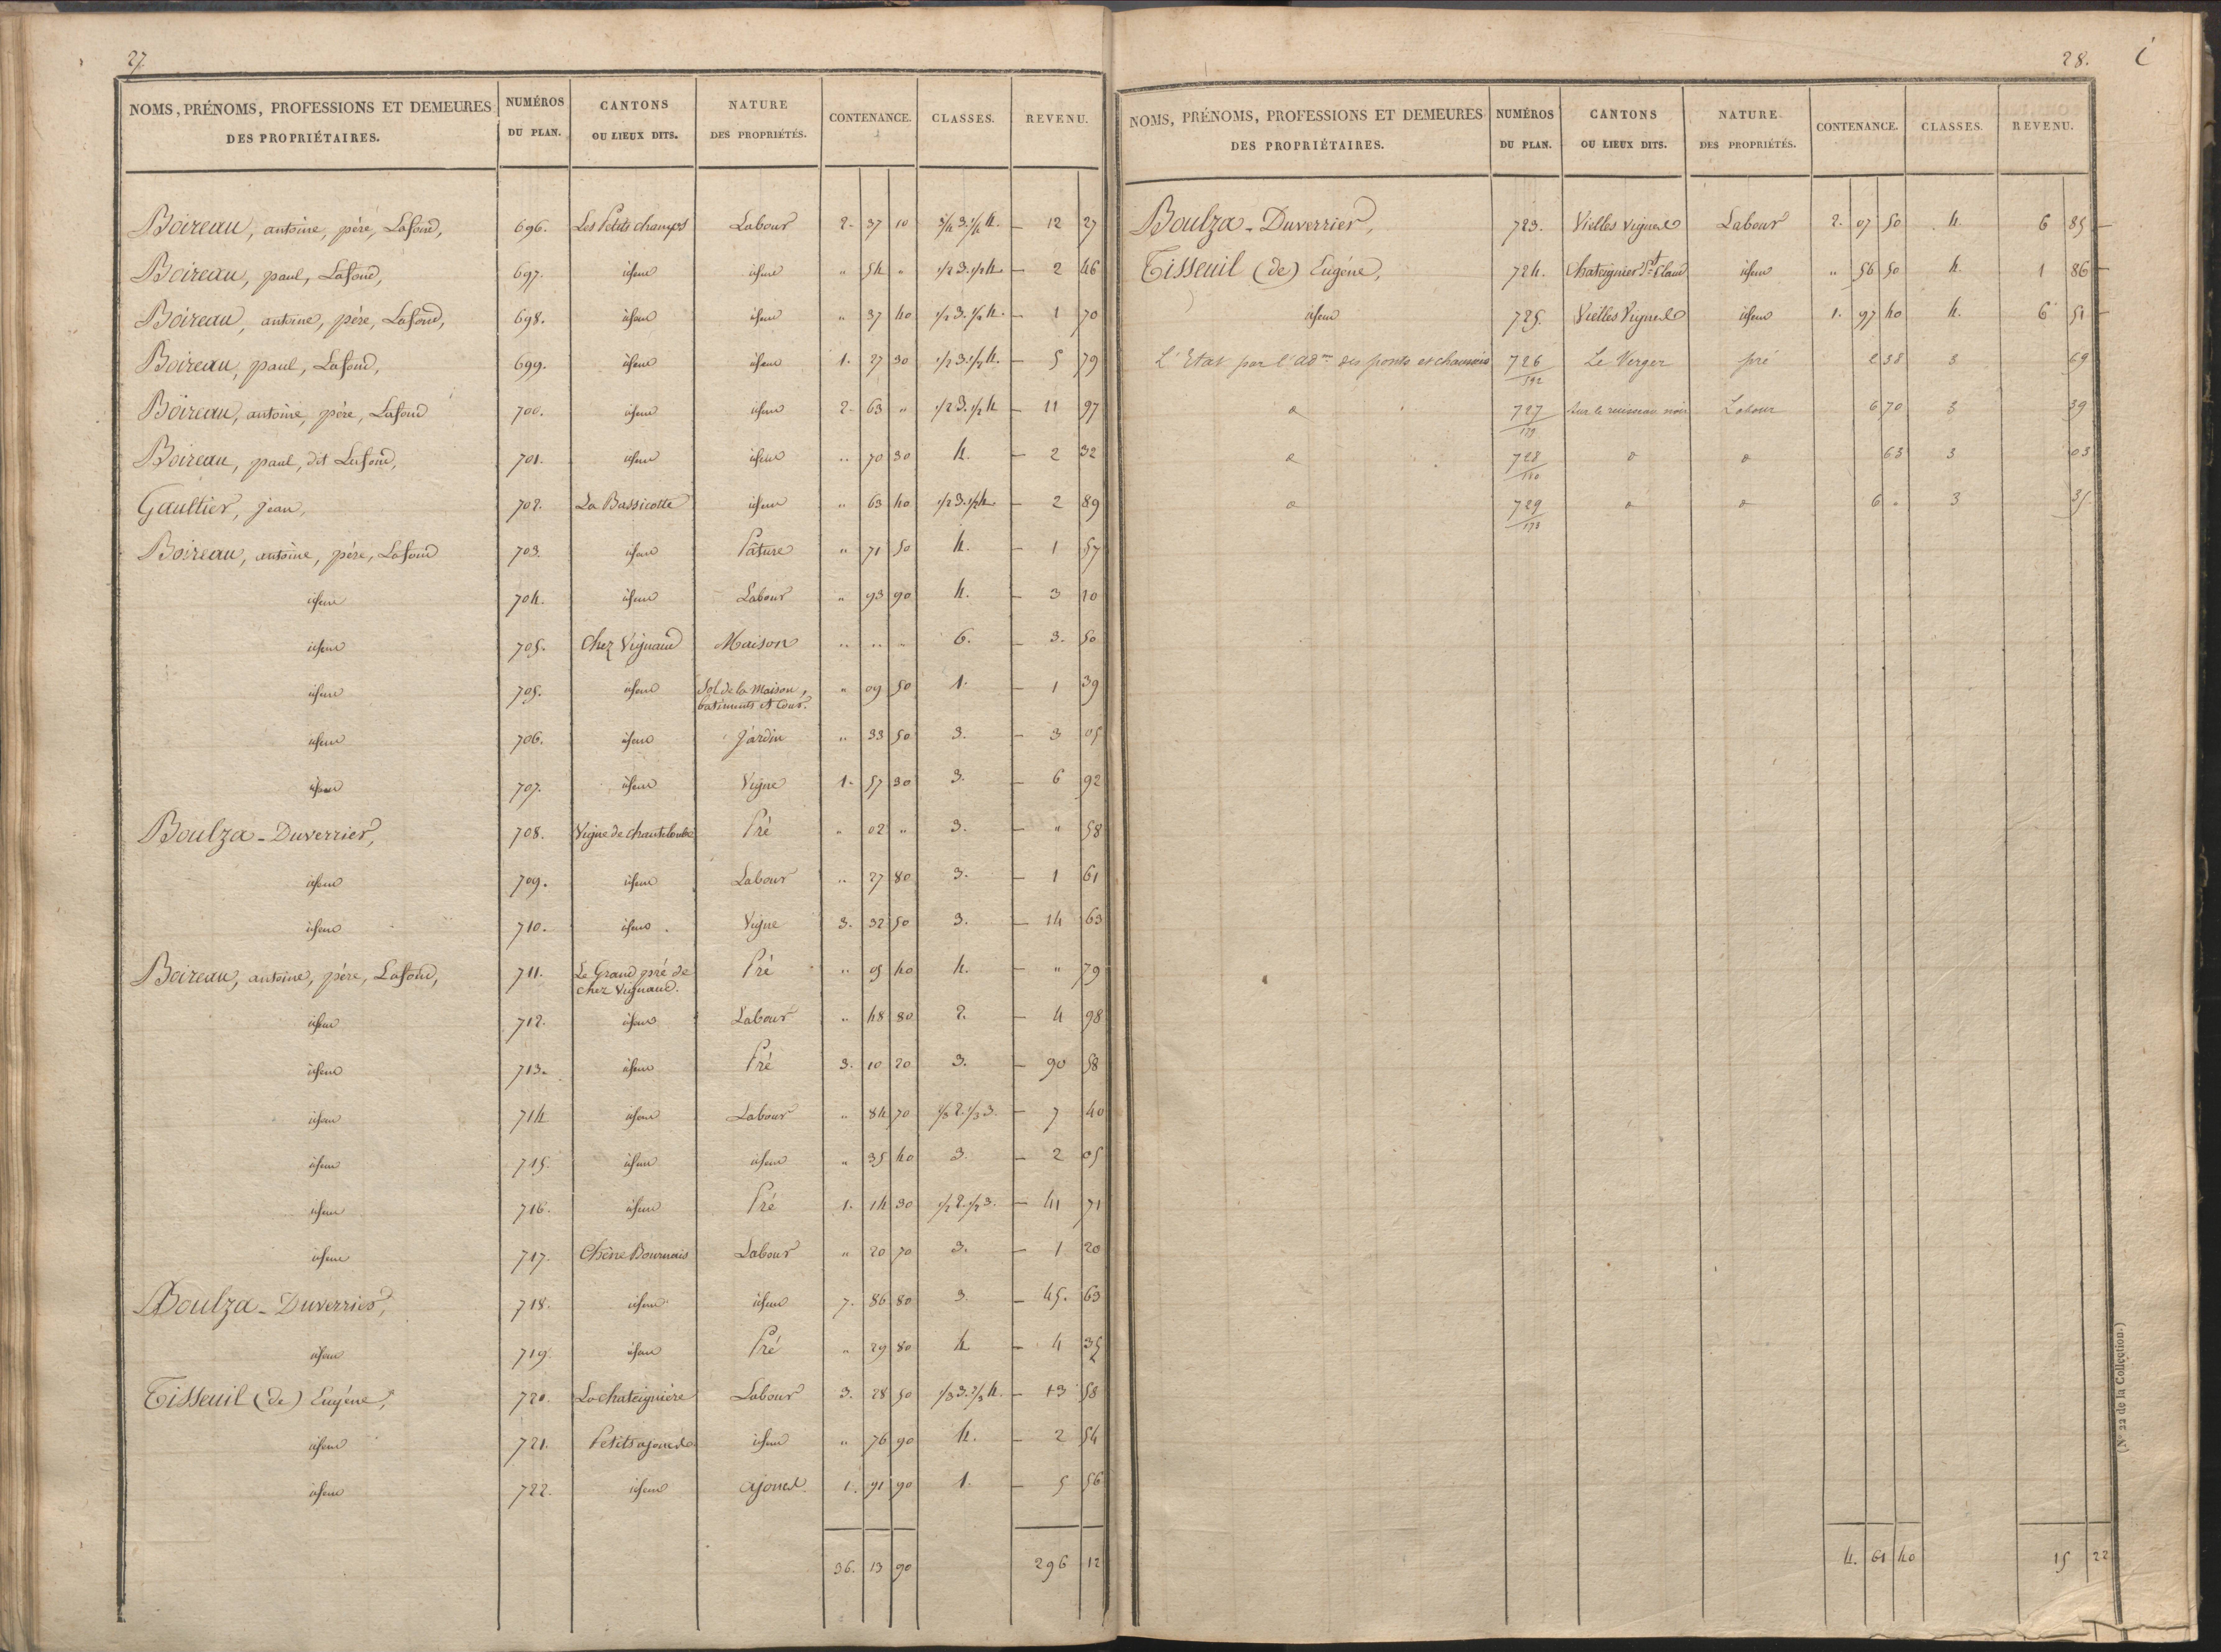 27.
NOMS, PRÉNOMS, PROFESSIONS ET DEMEURES DES PROPRIÉTAIRES. NUMÉROS DU PLAN. CANTONS OU LIEUX DITS. NATURE DES PROPRIÉTÉS. CONTENANCE. CLASSES. REVENU.
Boireau, antoine, père, Lafond, 696. Les Petits champs Labour 2. 37 10 3/4 3. 1/4 4. — 12 27
Boireau, paul, Lafond, 697. idem idem " 54 " 1/2 3. 1/2 4. — 2 46
Boireau, antoine, père, Lafond, 698. idem idem " 37 40 1/2 3. 1/2 4. — 1 70
Boireau, paul, Lafond, 699. idem idem 1. 27 30 1/2 3. 1/2 4. — 5 79
Boireau, antoine, père, Lafond 700. idem idem 2. 63 " 1/2 3. 1/2 4 — 11 97
Boireau, paul, dit Lafond, 701. idem idem " 70 30 4. — 2 32
Gaultier, jean, 702. La Bassicotte idem " 63 40 1/2 3. 1/2 4. — 2 89
Boireau, antoine, père, Lafond 703. idem Pâture " 71 50 4. — 1 57
idem 704. idem Labour " 93 90 4. — 3 10
idem 705. Chez Vignaud Maison " " " 6. — 3. 50
idem 705. idem Sol de la maison, batiments et Cour. " 09 50 1. — 1 39
idem 706. idem Jardin " 33 50 3. — 3 05
idem 707. idem Vigne 1. 57 30 3. — 6 92
Boulza-Duverrier, 708. Vigne de chanteloube Pré " 02 " 3. — " 58
idem 709. idem Labour " 27 80 3. — 1 61
idem 710. idem Vigne 3. 32 50 3. — 14 63
Boireau, antoine, père, Lafond, 711. Le Grand pré de chez Vignaud. Pré " 05 40 4. — " 79
idem 712. idem Labour " 48 80 2. — 4 98
idem 713. idem Pré 3. 10 20 3. — 90 58
idem 714 idem Labour " 84 70 2. 1/3 3. — 7 40
idem 715. idem idem " 35 40 3. — 2 05
idem 716. idem Pré 1. 14 30 1/2 2. 1/2 3. — 41 71
idem 717. Chêne Bournais Labour " 20 70 3. — 1 20
Boulza-Duverrier, 718. idem idem 7. 86 80 3. — 45. 63
idem 719. idem Pré " 29 80 4 — 4 35
Tisseuil (de) Eugéne, 720. La chateignière Labour 3. 28 50 1/3 3. 2/3 4. — 13 58
idem 721. Petits ajoncs idem " 76 90 4. — 2 54
idem 722. idem ajoncs. 1. 91 90 1. — 5 56
36. 13 90 296 12
28. i
NOMS, PRÉNOMS, PROFESSIONS ET DEMEURES DES PROPRIÉTAIRES. NUMÉROS DU PLAN. CANTONS OU LIEUX DITS. NATURE DES PROPRIÉTÉS. CONTENANCE. CLASSES. REVENU.
Boulza-Duverrier, 723. Vielles vignes Labour 2. 07 50 4. 6 85 —
Tisseuil (de) Eugéne, 724. Chateignier St. Claud idem " 56 50 4. 1 86 —
idem 725. Vielles Vignes idem 1. 97 40 4. 6 51 —
L'Etat par l'adon des ponts et chaussées 726/192 Le Verger pré 2 38 3 69
d 727/179 Sur le ruisseau noir Labour 6 70 3 39
d 728/180 d d 63 3 03
d 729/178 d d 6 " 3 35
4. 61 40 15 22
(No 22 de la Collection.)